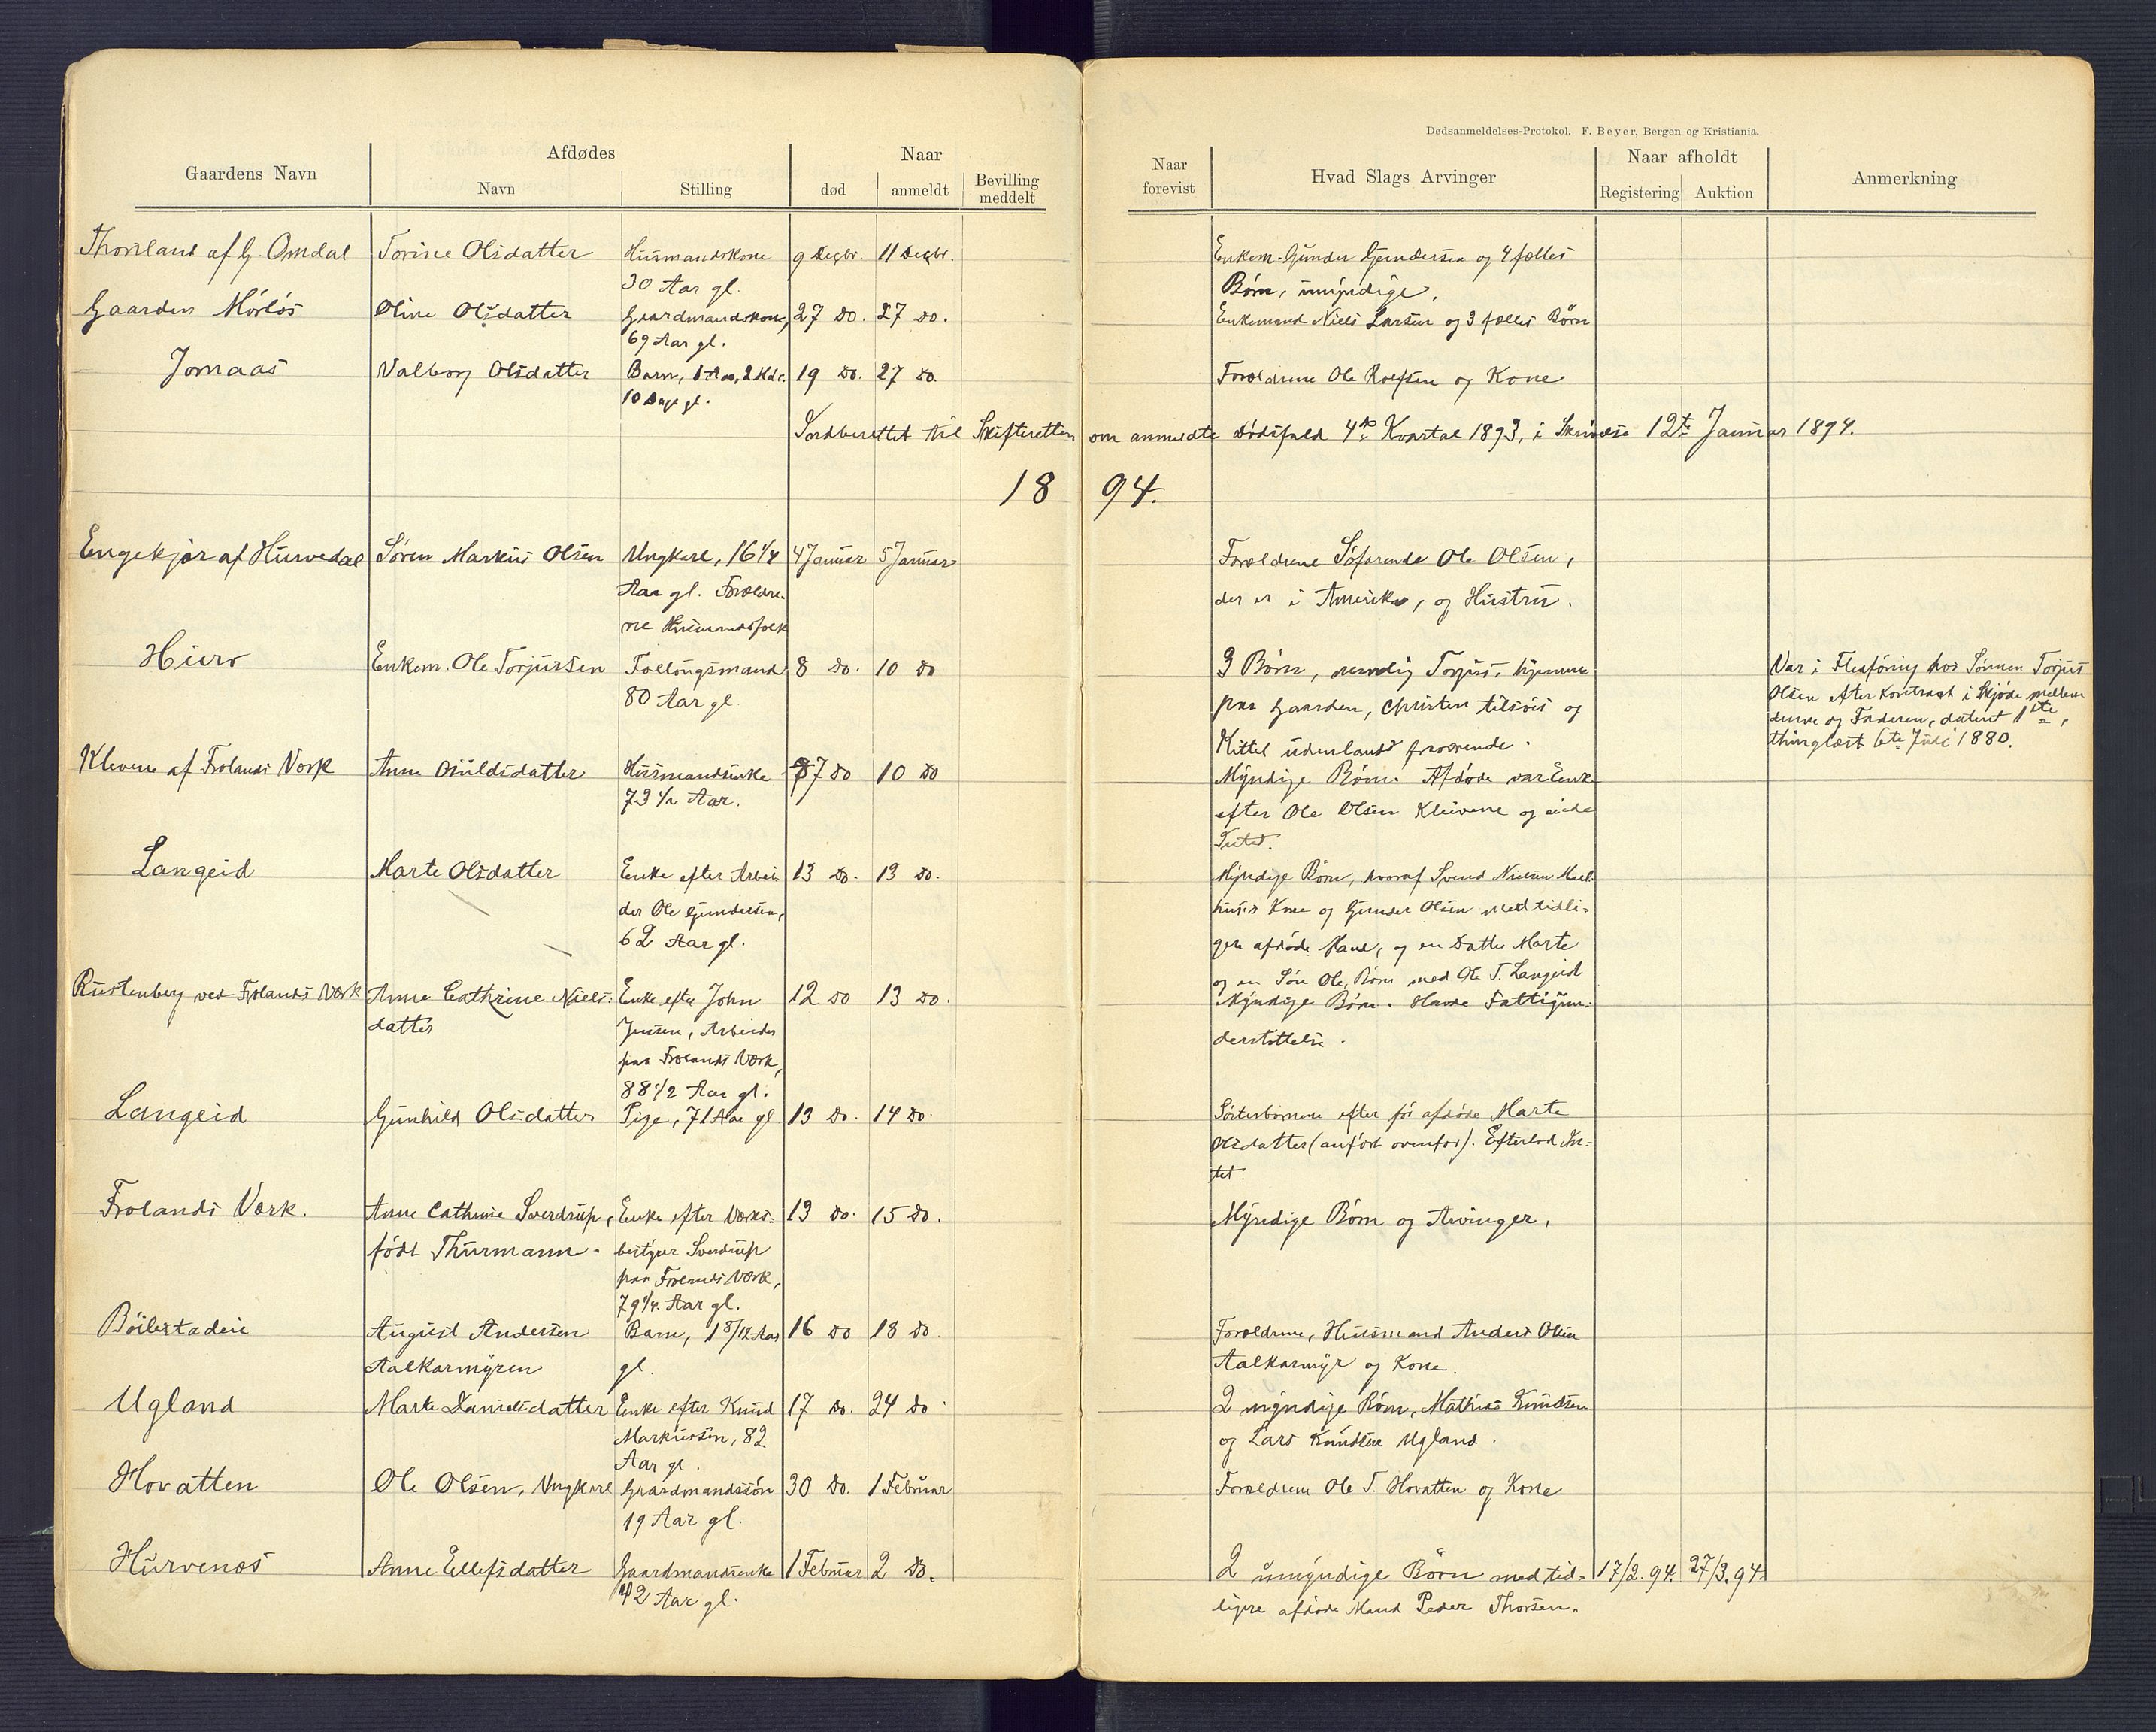 Dødsanmeldelses-Protokol. F. Beyer, Bergen og Kristiania.
Gaardens Navn
Afdødes
Navn
Stilling
Naar
død
anmeldt
Bevilling
meddelt
Naar
forevist
Hvad Slags Arvinger
Naar afholdt
Registering
Auktion
Anmerkning
Thorsland af G. Omdal Torine Olsdatter Husmandskone 9 Decbr. 11 Decbr. Enkem. Gunder Gundersen og 4 fælles
30 Aar gl. Børn, umyndige.
Gaarden Mörlös Oline Olsdatter Gaardmandskone, 27 do. 27 do. Enkemand Niels Larsen og 3 fælles Børn
69 Aar gl.
Jomaas Valborg Olsdatter Barn, 1 Aar, 2 Mdr. 19 do. 27 do. Forældrene Ole Rolfsen og Kone
10 Dage gl.
Indberettet til Skifteretten om anmeldte Dødsfald 4de Kvartal 1893, i Skrivelse 12te Januar 1894.
1894.
Engekjær af Hurvedal Søren Markus Olsen Ungkarl, 16 1/4 4 Januar 5 Januar Forældrene Søfarende Ole Olsen,
Aar gl. Forældre- der er i Amerika, og Hustru.
ne Husmandsfolk
Hurv Enkem. Ole Torjursen Føllougsmand 8 do. 10 do 3 Børn, nemlig Torjus, hjemme Var i Flesføring hos Sønnen Torjus
80 Aar gl. paa Gaarden, Christen tilsøis og Olsen efter Kontragt i Skjøde mellem
Kittel udenlands fraværende. denne og Faderen, dateret 1ste,
thinglæst 6te Juli 1880.
Klevene af Frolands Værk Anne Osuldsdatter Husmandsenke 7 do 10 do Myndige Børn. Afdøde var Enke
73 1/2 Aar. efter Ole Olsen Kleivene og eiede
Intet.
Langeid Marte Olsdatter Enke efter Arbei- 13 do. 13 do. Myndige Børn, hvoraf Svend Nielsen
der Ole Gundersen, Kone og Gunder Olsen med tidli-
62 Aar gl. gere afdøde Mand, og en Datter Marte
og en Søn Ole, Børn med Ole T. Langeid
Rustenberg ved Frolands Værk Anne Cathrine Niels- Enke efter John 12 do 13 do. Myndige Børn. Havde Fattigun-
datter Jensen, Arbeider derstøttelse.
paa Frolands Værk,
88 1/2 Aar gl.
Langeid Gunhild Olsdatter Pige, 71 Aar gl 13 do. 14 do. Søsterbørnene efter før afdøde Marte
Olsdatter (anført ovenfor). Efterlod In-
tet.
Frolands Værk. Anne Cathrine Sverdrup, Enke efter Værks- 13 do. 15 do. Myndige Børn og Arvinger.
født Thurmann. bestyrer Sverdrup
paa Frolands Værk,
79 1/4 Aar gl.
Böilestadeie August Andersen Barn, 1 8/12 Aar 16 do 18 do. Forældrene, Husmand Anders Olsen
Aalkarmyren gl. Aalkarmyr og Kone.
Ugland Marte Danielsdatter Enke efter Knud 17 do. 24 do. 2 myndige Børn, Mathias Knudsen
Markussen, 82 og Lars Knudsen Ugland.
Aar gl.
Hovatten Ole Olsen, Ungkarl Gaardmandssøn 30 do. 1 Februar Forældrene Ole T. Hovatten og Kone
19 Aar gl.
Hurvenæs Anne Ellefsdatter Gaardmandsenke 1 Februar 2 do. 2 umyndige Børn med tid- 17/2.94. 27/3.94.
42 Aar gl. ligere afdøde Mand Peder Thorsen.